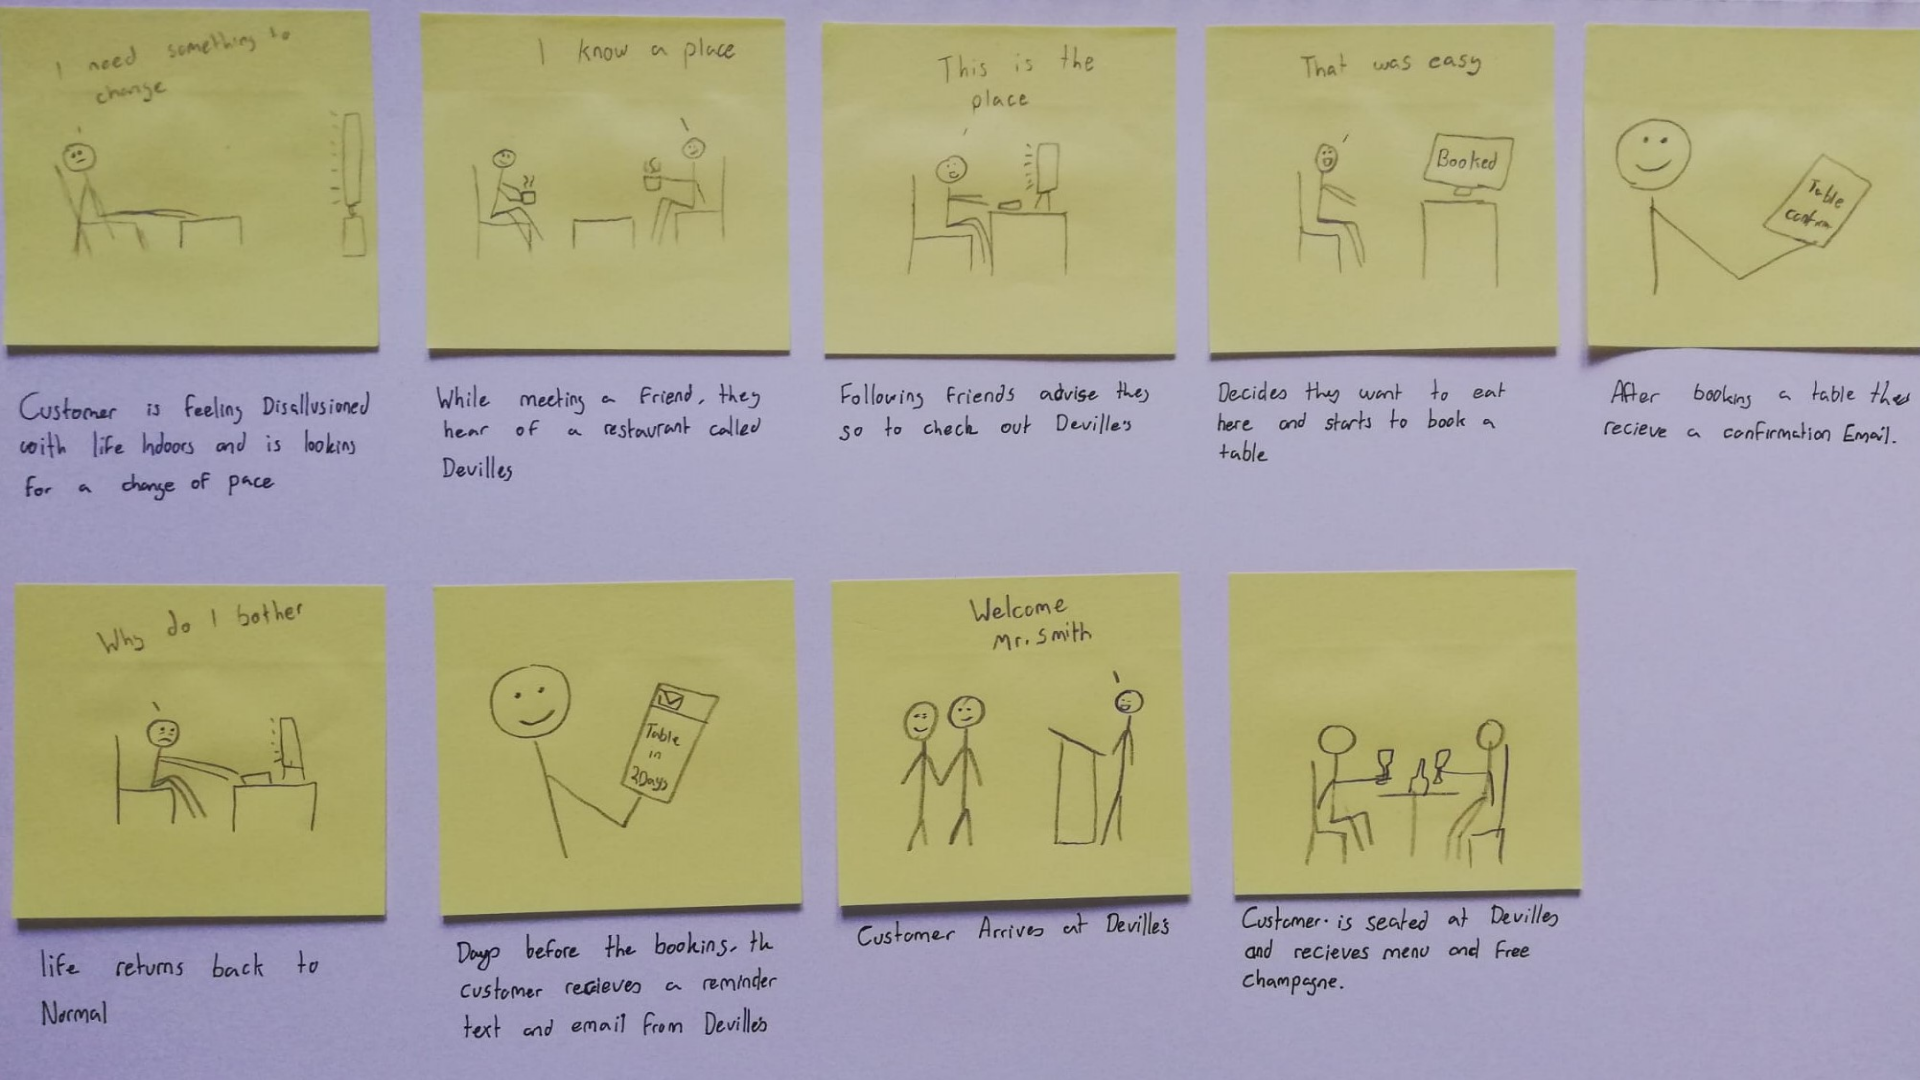 I need something to
change
Customer is feeling Disallusioned
with life Indoors and is looking
for a change of pace
I know a place
While meeting a Friend, they
hear of a restaurant called
Devilles
This is the
place
Following friends advise they
so to check out Deville's
That was easy
Booked
Decides they want to eat
here and starts to book a
table
Table
confirm
After booking a table they
recieve a confirmation Email.
Why do I bother
life returns back to
Normal
Table
in
2Days
Days before the booking, th
customer recieves a reminder
text and email from Deville's
Welcome
Mr. Smith
Customer Arrives at Deville's
Customer is seated at Devilles
and recieves menu and free
champagne.